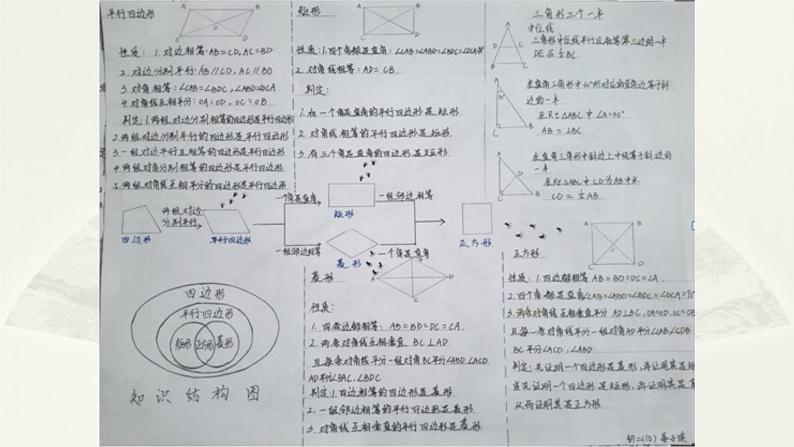 平行四边形
A
B
O
C
D
性质：1.对边相等：AB=CD，AC=BD
2.对边分别平行：AB∥CD，AC∥BD
3.对角相等：∠CAB=∠BDC，∠ABD=∠DCA
4.对角线互相平分：OA=OD，OC=OB
判定：1.两组对边分别相等的四边形是平行四边形
2.两组对边分别平行的四边形是平行四边形
3.一组对边平行且相等的四边形是平行四边形
4.两组对角分别相等的四边形是平行四边形
5.两组对角线互相平分的四边形是平行四边形
矩形
A
B
C
D
性质：1.四个角都是直角：∠CAB=∠ABD=∠BDC=∠DCA
2.对角线相等：AD=CB
判定：
1.有一个角是直角的平行四边形是矩形
2.对角线相等的平行四边形是矩形
3.有三个角是直角的四边形是矩形
三角形三个一半
中位线
三角形中位线平行且相等第三边的一半
DE
BC
在直角三角形中30°所对应的直角边等于斜边的一半
在Rt△ABC中
AB=2BC
在直角三角形中斜边上中线等于斜边的一半
在Rt△ABC中CD为AB中线
CD=½AB
四边形
两组对边
分别平行
平行四边形
一个角是直角
矩形
一组邻边相等
一组邻边相等
菱形
一个角是直角
正方形
四边形
平行四边形
矩形
正方形
菱形
知识结构图
菱形
A
B
C
D
性质：
1.四条边都相等：AB=BD=DC=CA
2.两条对角线互相垂直 BC⊥AD
且每条对角线平分一组对角BC平分∠ABD∠ACD
AD平分∠BAC，∠BDC
判定1.四边相等的四边形是菱形
2.一组邻边相等的平行四边形是菱形
3.对角线互相垂直的平行四边形是菱形
正方形
A
B
C
D
性质：1.四边都相等AB=BD=DC=CA
2.四个角都是直角∠CAB=∠ABD=∠BDC=∠DCA=90°
3.两条对角线互相垂直平分AD⊥BC，OA=OD，OC=OB
且每一条对角线平分一组对角AD平分∠CAB，∠CDB
BC平分∠ACD，∠ABD
判定：先证明一个四边形是菱形，再证明其是矩
或先证明一个四边形是矩形，再证明其是菱
从而证明其是正方形
初二(10)